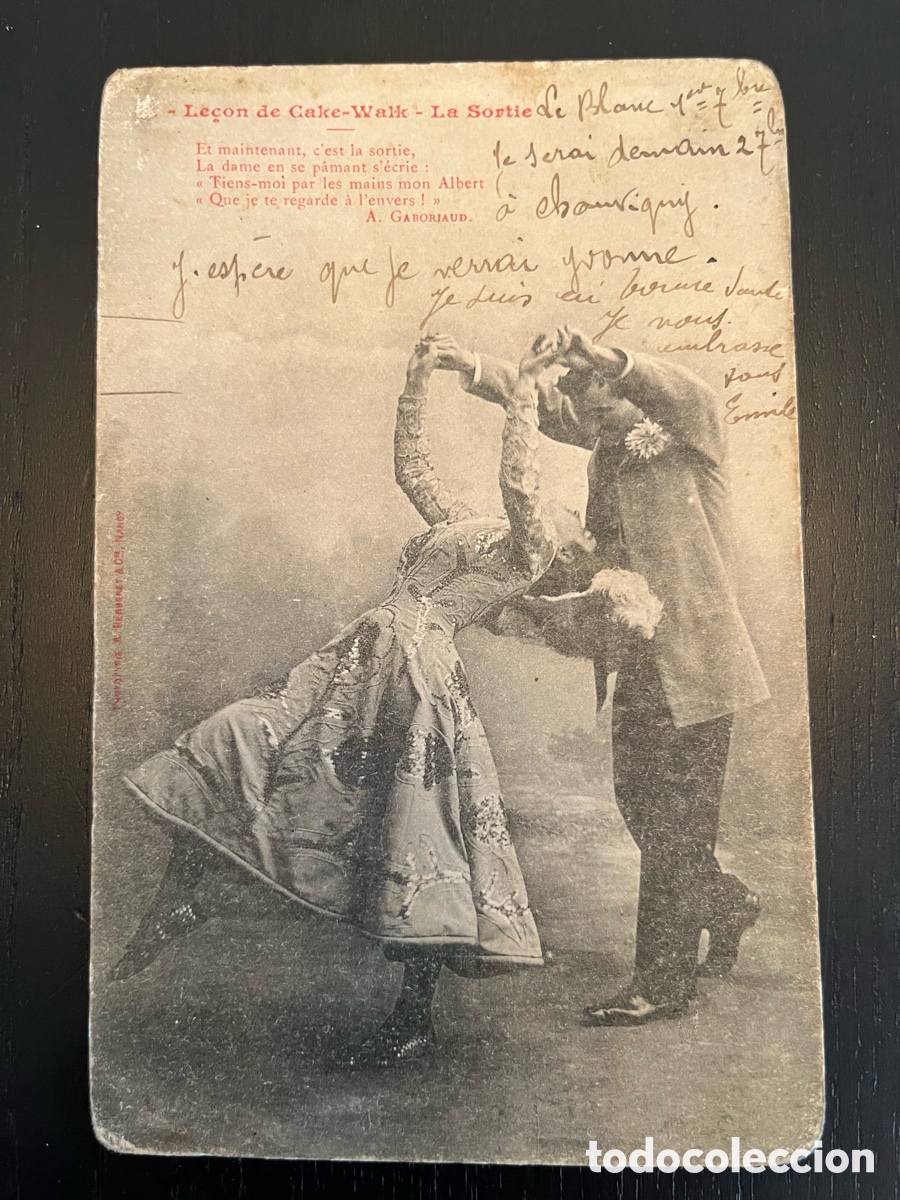 - Leçon de Cake-Walk - La Sortie
Et maintenant, c'est la sortie,
La dame en se pâmant s'écrie :
« Tiens-moi par les mains mon Albert
« Que je te regarde à l'envers ! »
A. Gaboriaud.
Le Blanc 1er 7bre
Je serai demain 2 7bre
à Chauvigny.
J'espère que je verrai Yvonne.
Je suis en bonne santé
Je vous
embrasse
tous
Emile
PHOTOTYPIE A. BERGERET & Cie, NANCY
todocoleccion